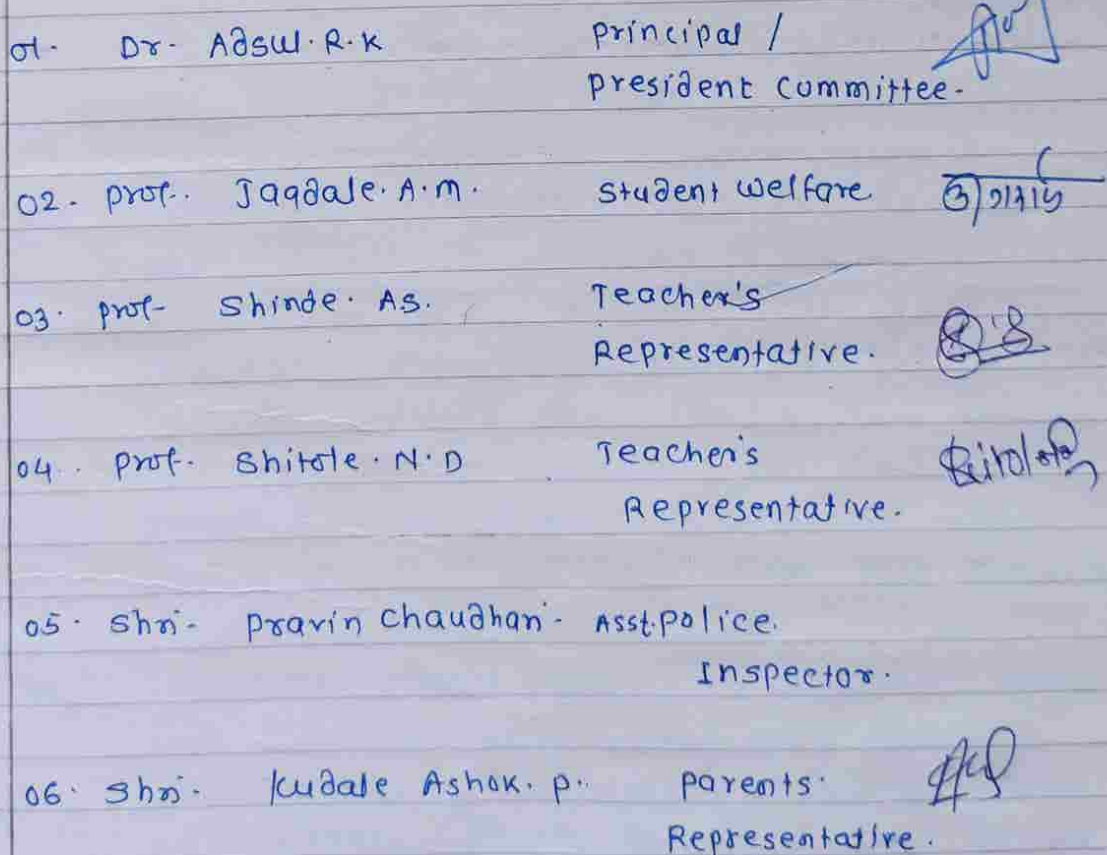 01. Dr. Adsul. R. K principal /
president committee.
02. prof. Jagdale. A. m. Student welfare
03. prof- Shinde. A S. Teacher's
Representative.
04. prof. Shitole. N. D Teacher's
Representative.
05. Shri. pravin Chaudhari. Asst. police.
Inspector.
06. Shri. Kudale Ashok. p. parents.
Representative.